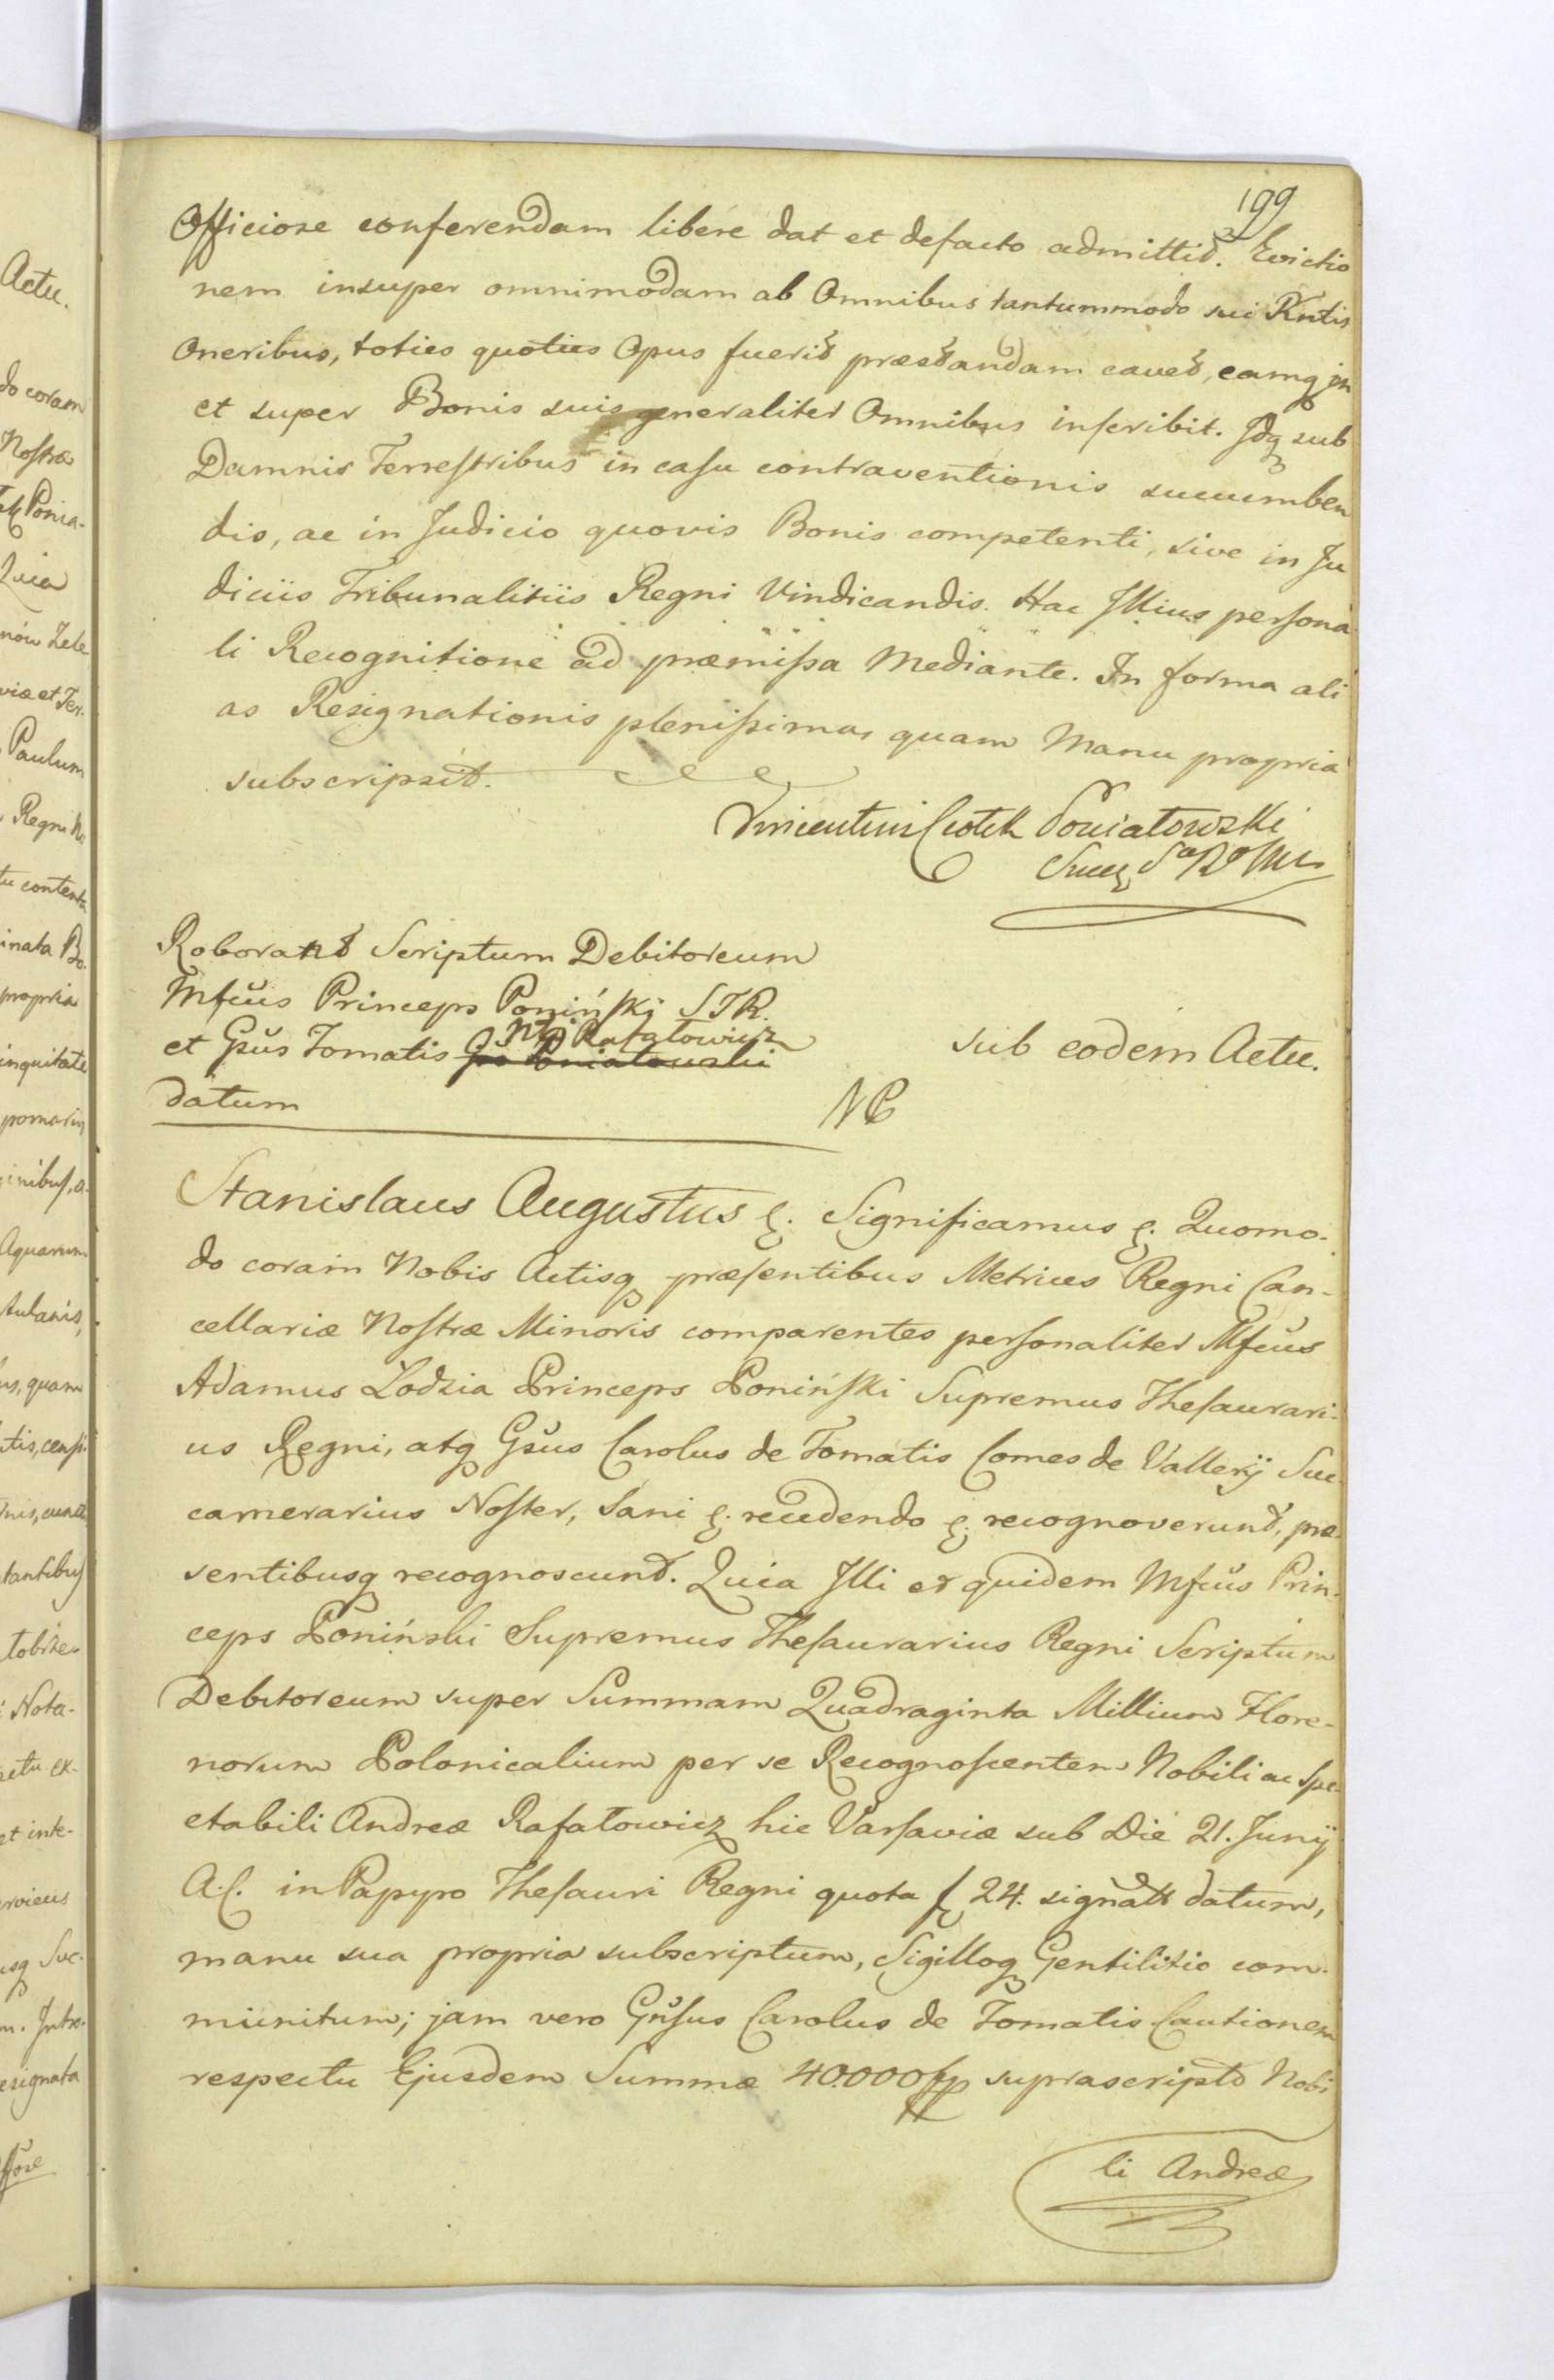 199
Officiose conferendam libere dat et defacto admittit. Evictio
nem insuper omnimodam ab Omnibus tantummodo sui Rntis
Oneribus, toties quoties Opus fuerit præstandam cavet, eamq in
et super Bonis suis generaliter Omnibus inscribit. Idq sub
Damnis Terrestribus in casu contraventionis succumben
dis, ac in Judicio quovis Bonis competenti, sive in Ju
diciis Tribunalitiis Regni Vindicandis. Hac Illius persona
li Recognitione ad præmissa Mediante. In forma ali
as Resignationis plenissima, quam Manu propria
subscripsit.
Vincentius Ciołek Poniatowski
Roborant Scriptum Debitoreum
Mfcus Princeps Poniński STR.
et Gsus Tomatis Nb Rafałowicz
datum
sub eodem Actu.
Stanislaus Augustus &. Significamus &. Quomo-
do coram Nobis Actisq præsentibus Metrices Regni Can-
cellariæ Nostræ Minoris comparentes personaliter Mfcus
Adamus Lodzia Princeps Poniński Supremus Thesaurari-
us Regni, atq Gsus Carolus de Tomatis Comes de Vallerij Suc-
camerarius Noster, Sani &. recedendo &. recognoverunt, præ-
sentibusq recognoscunt. Quia Illi et quidem Mfcus Prin-
ceps Poniński Supremus Thesaurarius Regni Scriptum
Debitoreum super Summam Quadraginta Millium Flore-
norum Polonicalium per se Recognoscentem Nobili ac Spe-
ctabili Andreæ Rafałowicz hic Varsaviæ sub Die 21. Junij
A.C. in Papyro Thesauri Regni quota f 24. signatt datum,
manu sua propria subscriptum, Sigilloq Gentilitio com-
munitum; jam vero Gnsus Carolus de Tomatis Cautionem
respectu Ejusdem Summæ 40.000 fp suprascripto Nobi
li Andreæ